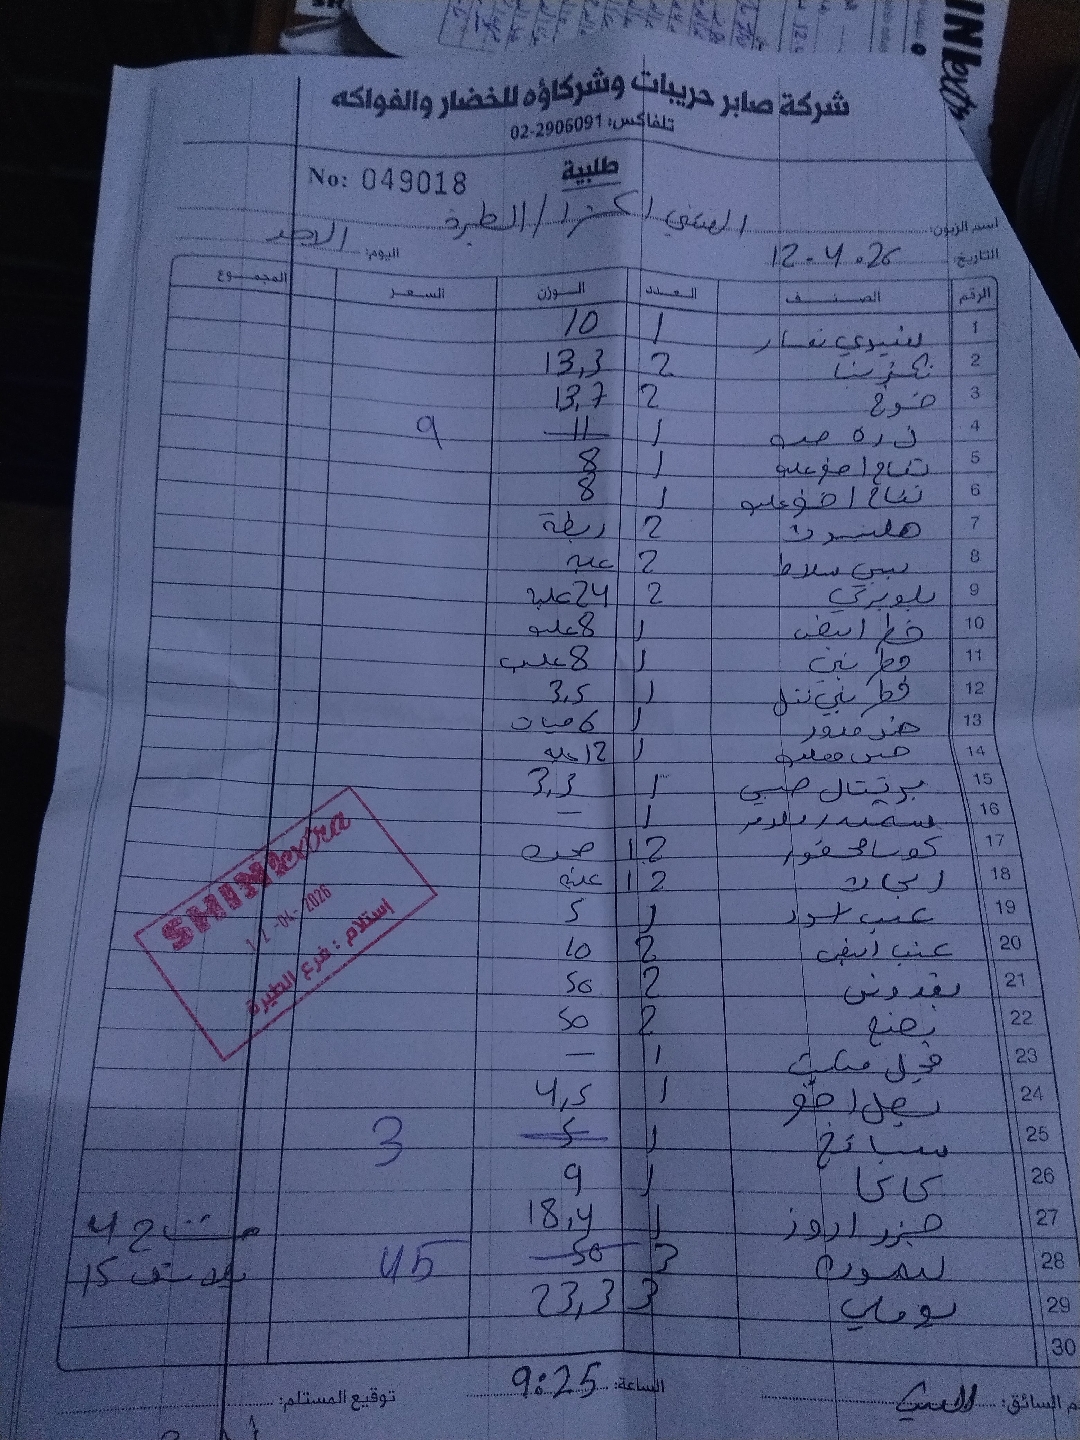 شركة صابر حريبات وشركاؤه للخضار والفواكه
تلفاكس: 02-2906091
طلبية
No: 049018
اسم الزبون: اكسترا / الطيرة
التاريخ: 12-4-26 اليوم: الاحد
الرقم الصنف العدد الوزن السعر المجموع
1 1 10
2 2 13,3
3 خوخ 2 13,7
4 ذره حبه 1 11 9
5 تفاح اخضر علبه 1 8
6 تفاح اخضر علبه 1 8
7 2 ربطة
8 بيبي سلاط 2 علبه
9 بلوبري 2 24 علبه
10 فطر ابيض 1 8 علبه
11 فطر بني 1 8 علب
12 فطر بني 1 3,5
13 1 6 حبات
14 1 12 علبه
15 برتقال صيني 1 3,3
16 1 –
17 كوسا محفور 12
18 12 علبه
19 عنب اسود 1 5
20 عنب ابيض 2 10
21 بقدونس 2 50
22 نعنع 2 50
23 فجل 1 –
24 بصل اخضر 1 4,5
25 سبانخ 1 5 3
26 كاكا 1 9
27 1 18,4 4
28 ليمون 3 50 45 15
29 بوملي 3 23,3
30
SHINIextra
12-04-2026
إستلام : فرع الطيرة
م السائق: الساعة: 9:25 توقيع المستلم: